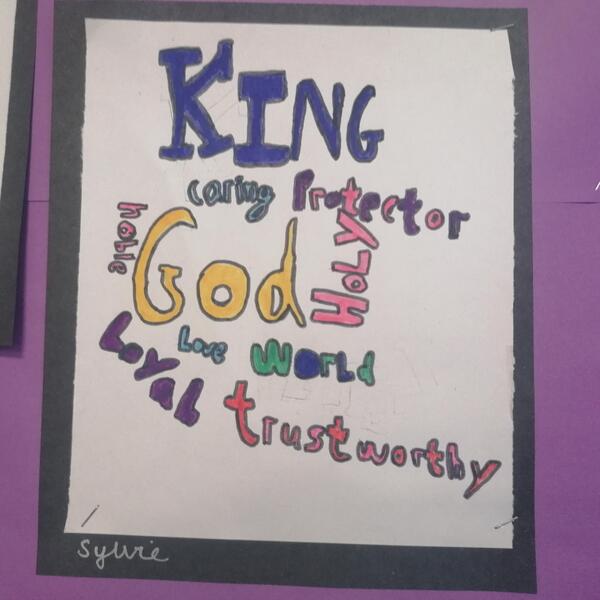 KING
caring Protector
hoble
God
HOLY
Love World
Loyal
trustworthy
Sylvie